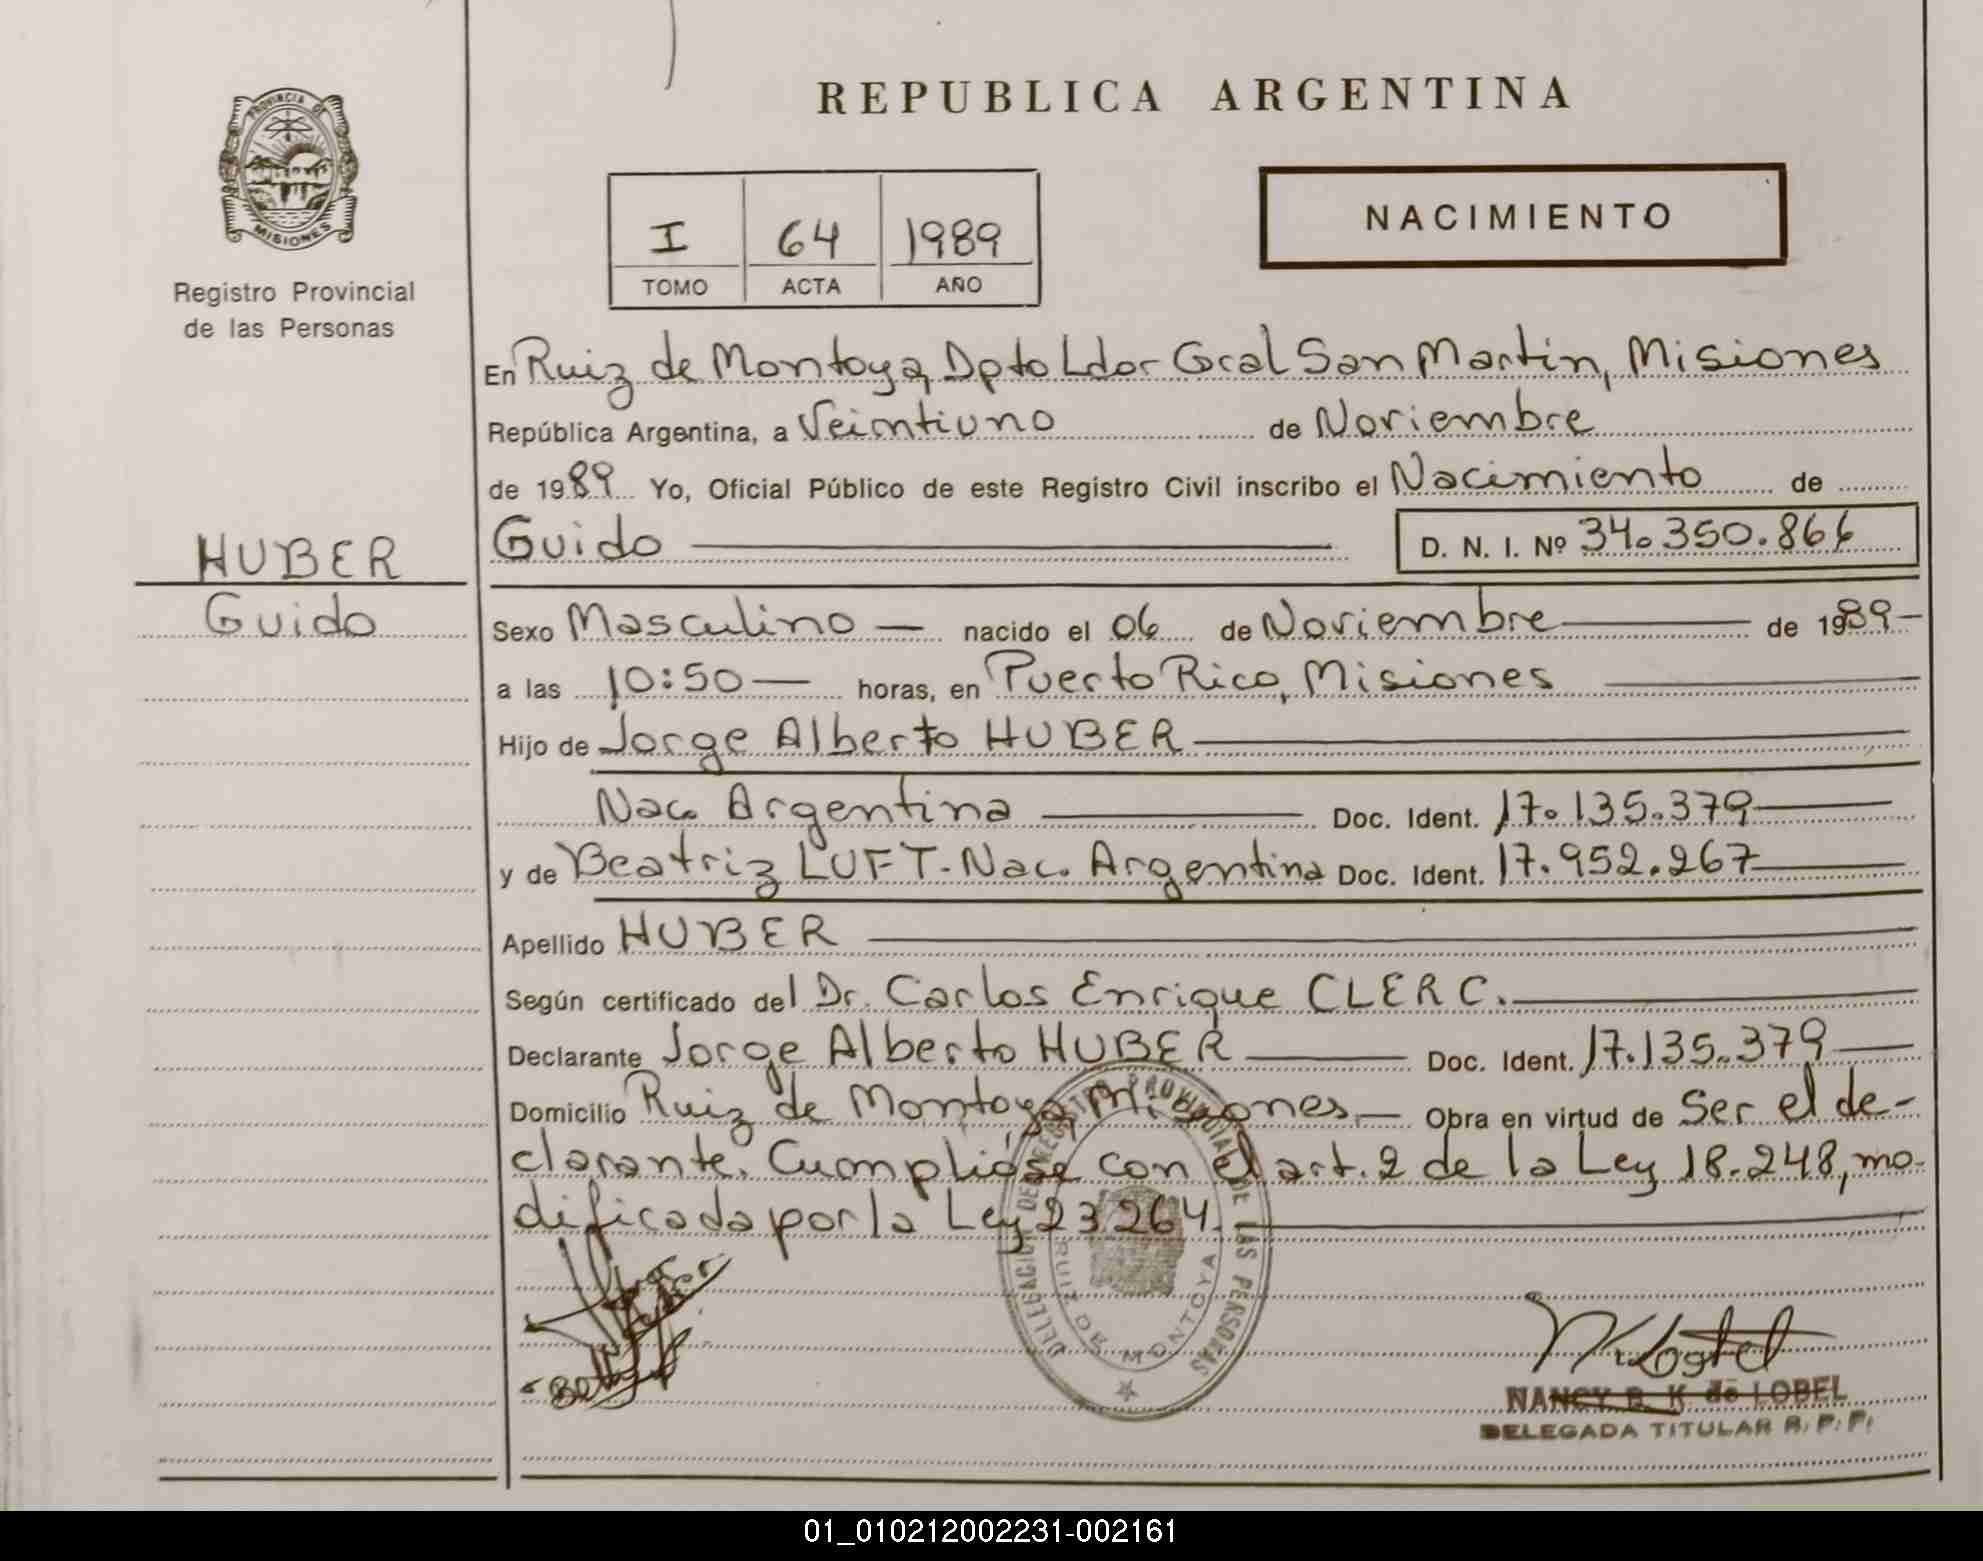 PROVINCIA DE
MISIONES
Registro Provincial
de las Personas
HUBER
Guido
REPUBLICA ARGENTINA
I 64 1989
TOMO ACTA AÑO
NACIMIENTO
En Ruiz de Montoya, Dpto Ldor Gral San Martin, Misiones
República Argentina, a Veintiuno de Noviembre
de 1989 Yo, Oficial Público de este Registro Civil inscribo el Nacimiento de
Guido D. N. I. Nº 34.350.866
Sexo Masculino — nacido el 06 de Noviembre — de 1989 -
a las 10:50 — horas, en Puerto Rico, Misiones
Hijo de Jorge Alberto HUBER
Nac. Argentina — Doc. Ident. 17.135.379
y de Beatriz LUFT. Nac. Argentina Doc. Ident. 17.952.267
Apellido HUBER
Según certificado del Dr. Carlos Enrique CLERC.
Declarante Jorge Alberto HUBER — Doc. Ident. 17.135.379
Domicilio Ruiz de Montoya, Misiones — Obra en virtud de Ser el de-
clarante. Cumplióse con el art. 2 de la Ley 18.248, mo-
dificada por la Ley 23264.
DELEGACION DEL REGISTRO PROVINCIAL DE LAS PERSONAS
RUIZ DE MONTOYA
NANCY B. K de LOBEL
DELEGADA TITULAR R. P. P.
01_010212002231-002161